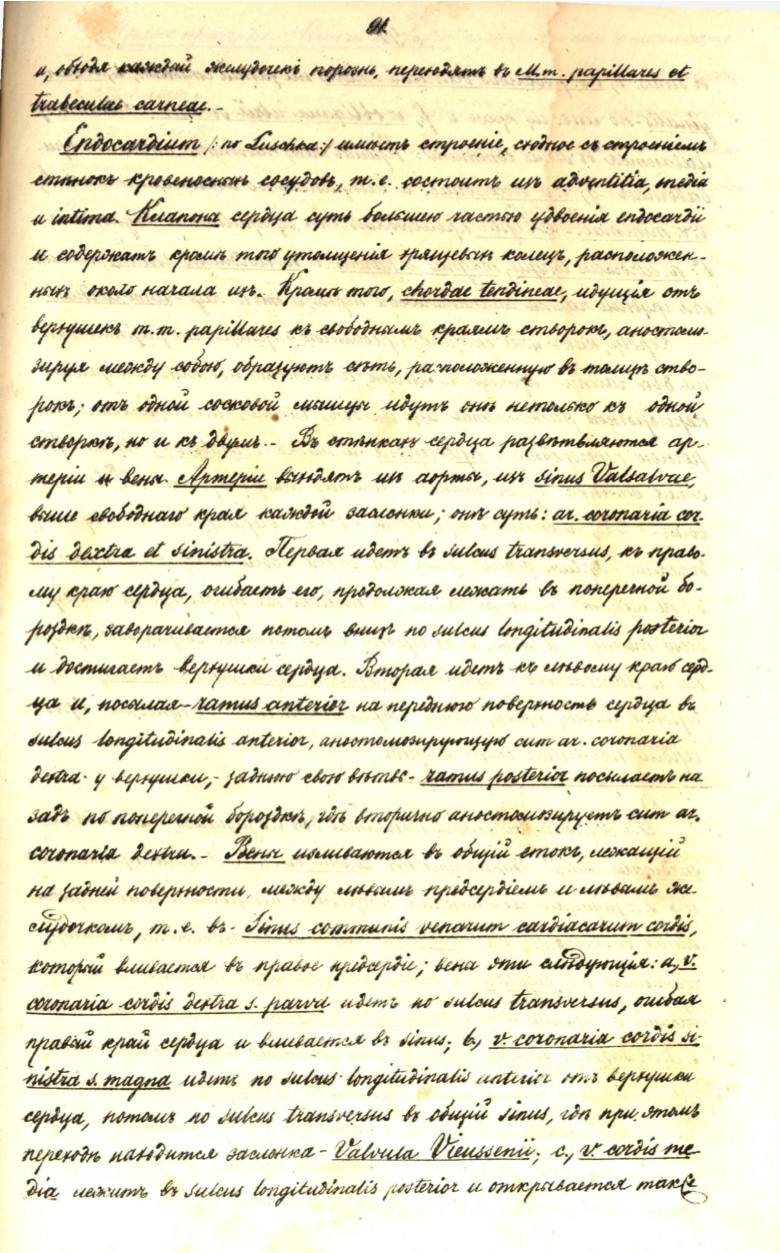 91.
и, обходя каждый желудочекъ порознь, переходятъ въ M.m. papillares et
trabeculae carneae. –
Endocardium /: по Luschka :/ имѣетъ строеніе, сходное съ строеніемъ
стѣнокъ кровеносныхъ сосудовъ, т.е. состоитъ изъ adventitia, media
и intima. Клапаны сердца суть большею частью удвоенія ендосардіи
и содержатъ кромѣ того утолщенія хрящевыхъ колецъ, расположен-
ныхъ около начала ихъ. Кромѣ того, chordae tendineae, идущія отъ
верхушекъ m.m. papillares къ свободнымъ краямъ створокъ, анастомо-
зируя между собою, образуютъ сѣть, расположенную въ толщѣ ство-
рокъ; отъ одной сосковой мышцы идутъ онѣ нетолько къ одной
створкѣ, но и къ двумъ. – Въ стѣнкахъ сердца развѣтвляются ар-
теріи и вены. Артеріи выходятъ изъ аорты, изъ sinus Valsalvae,
выше свободнаго края каждой заслонки; онѣ суть: ar. coronaria cor-
dis dextra et sinistra. Первая идетъ въ sulcus transversus, къ право-
му краю сердца, огибаетъ его, продолжая лежать въ поперечной бо-
роздкѣ, заворачивается потомъ внизъ по sulcus longitudinalis posterior
и достигаетъ верхушки сердца. Вторая идетъ къ лѣвому краю серд-
ца и, посылая – ramus anterior на переднюю поверхность сердца въ
sulcus longitudinalis anterior, анастомозирующую cum ar. coronaria
dextra у верхушки, – заднюю свою вѣтвь – ramus posterior посылаетъ на
задъ по поперечной бороздкѣ, гдѣ вторично анастомозируетъ cum ar.
coronaria dextra. – Вены изливаются въ общій стокъ, лежащій
на задней поверхности, между лѣвымъ предсердіемъ и лѣвымъ же-
лудочкомъ, т.е. въ – Sinus communis venarum cardiacarum cordis,
который вливается въ правое предсердіе; вены эти слѣдующія: a, v.
coronaria cordis dextra s. parva идетъ по sulcus transversus, огибая
правый край сердца и вливается въ sinus; b, v. coronaria cordis si-
nistra s. magna идетъ по sulcus longitudinalis anterior отъ верхушки
сердца, потомъ по sulcus transversus въ общій sinus, гдѣ при этомъ
переходѣ находится заслонка – Valvula Vieussenii; c, v. cordis me-
dia лежитъ въ sulcus longitudinalis posterior и открывается также